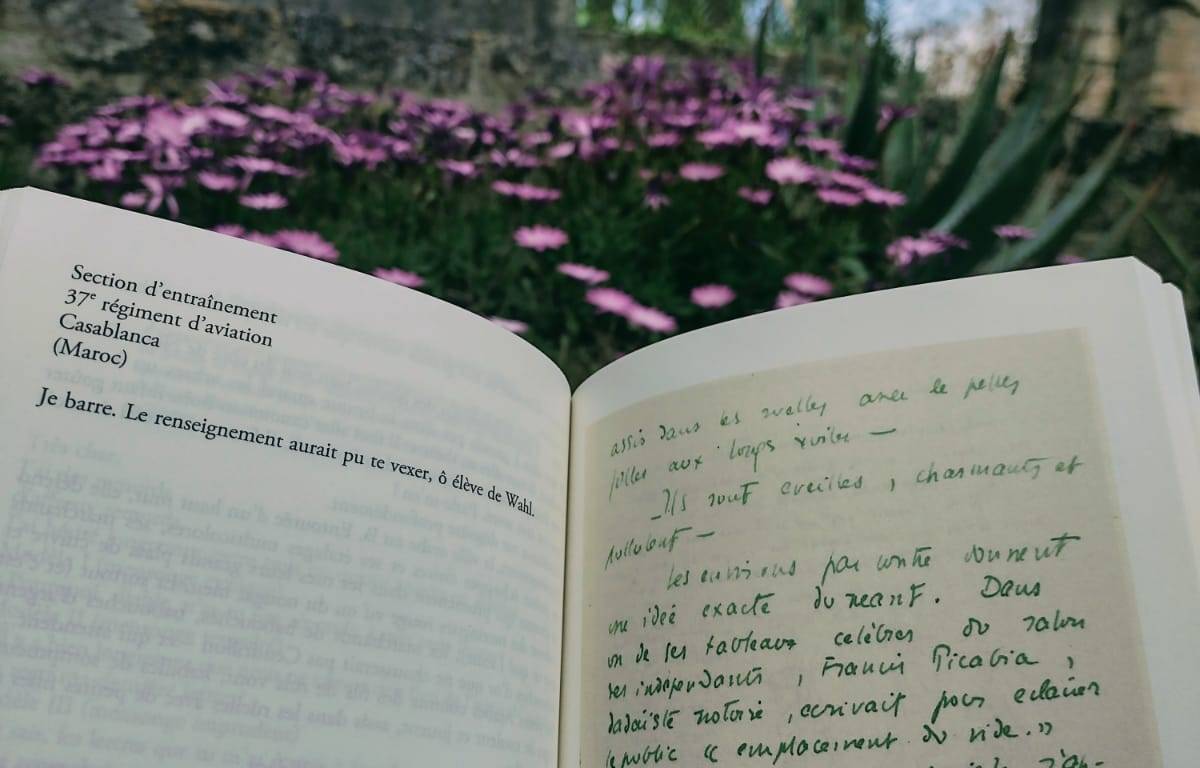 Section d'entraînement
37e régiment d'aviation
Casablanca
(Maroc)
Je barre. Le renseignement aurait pu te vexer, ô élève de Wahl.
assis dans les ruelles avec de petites
filles aux longs voiles —
Ils sont éveillés, charmants et
pullulent —
Les environs par contre donnent
une idée exacte du neant. Dans
un de ses tableaux celèbres du salon
des indépendants, Francis Picabia,
dadaïste notoire, ecrivait pour eclairer
le public « emplacement du vide. »